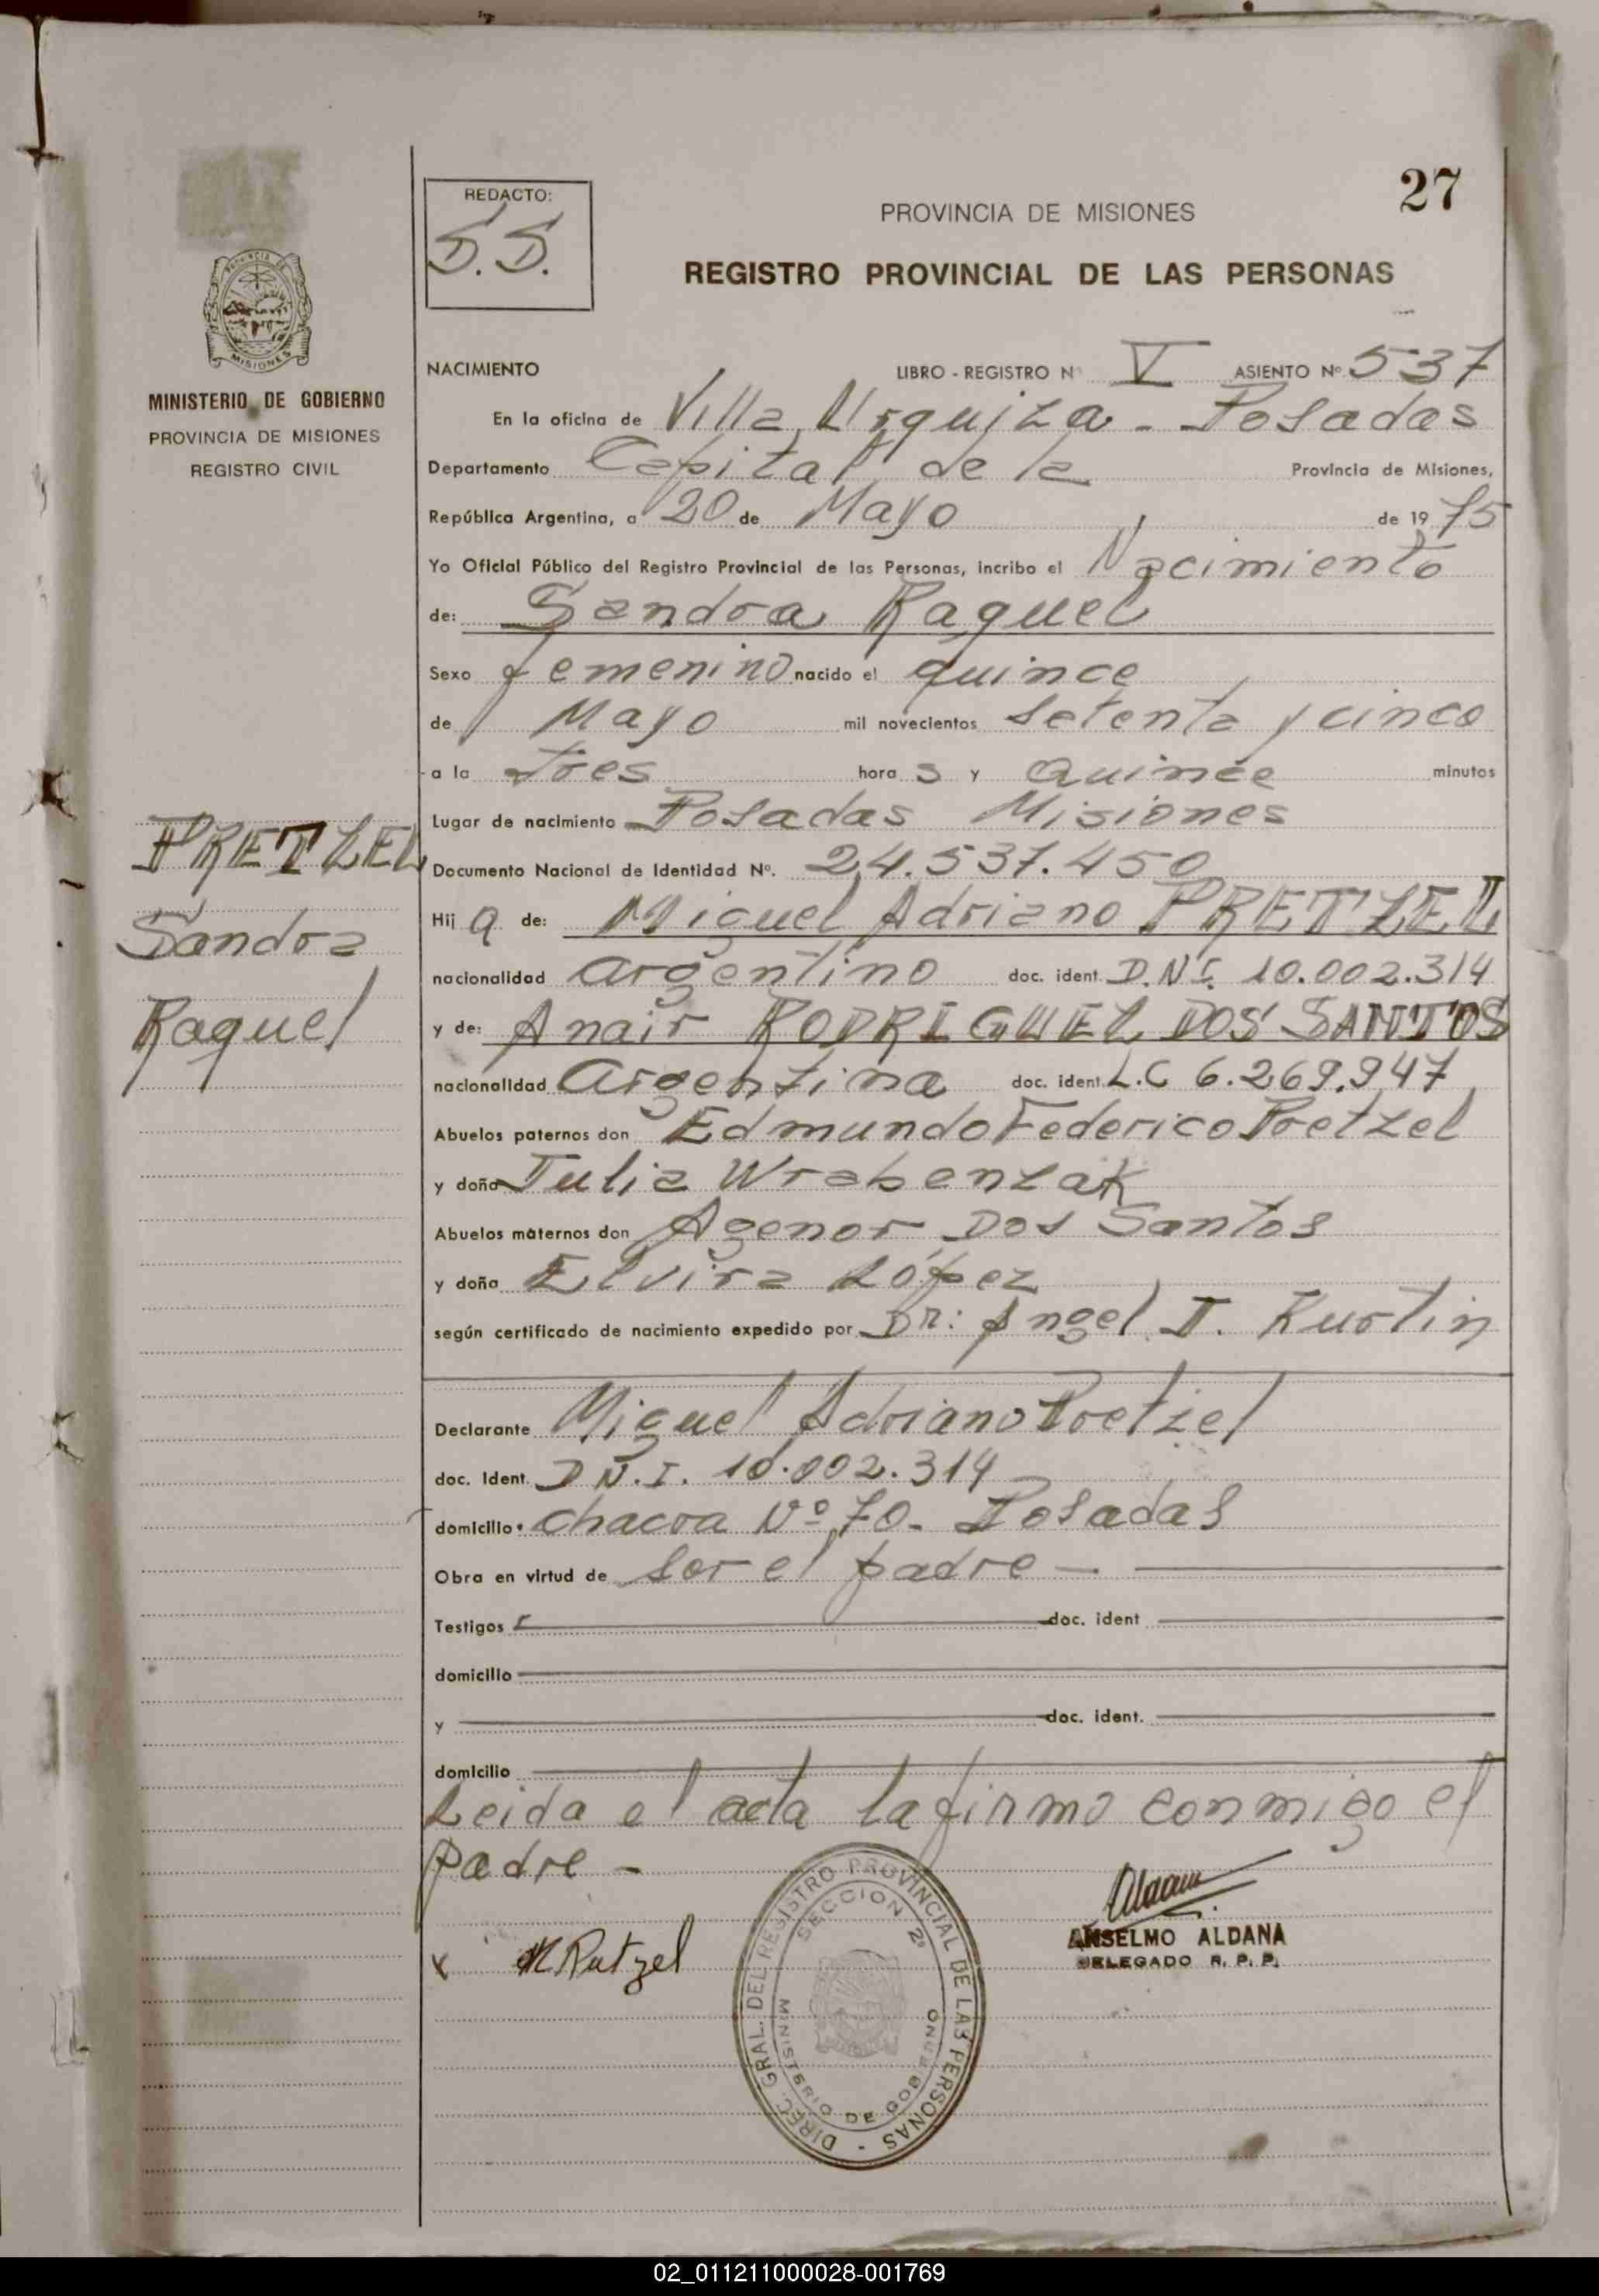 27
REDACTO:
S.S.
PROVINCIA DE MISIONES
REGISTRO PROVINCIAL DE LAS PERSONAS
PROVINCIA DE
MISIONES
MINISTERIO DE GOBIERNO
PROVINCIA DE MISIONES
REGISTRO CIVIL
NACIMIENTO LIBRO - REGISTRO Nº V ASIENTO Nº 537
En la oficina de Villa Urquiza - Posadas
Departamento Capital de la Provincia de Misiones,
República Argentina, a 20 de Mayo de 19 75
Yo Oficial Público del Registro Provincial de las Personas, incribo el Nacimiento
de: Sandra Raquel
Sexo femenino nacido el quince
de Mayo mil novecientos setenta y cinco
a la tres hora s y Quince minutos
Lugar de nacimiento Posadas Misiones
Documento Nacional de Identidad Nº. 24.537.450
PRETZEL
Sandra
Raquel
Hij a de: Miguel Adriano PRETZEL
nacionalidad argentino doc. ident. D.N.I. 10.002.314
y de: Anair RODRIGUEZ DOS SANTOS
nacionalidad Argentina doc. ident. L.C 6.269.947
Abuelos paternos don Edmundo Federico Pretzel
y doña Julia Wrabenzak
Abuelos maternos don Agenor Dos Santos
y doña Elvira López
según certificado de nacimiento expedido por Dr: Angel I. Kurtin
Declarante Miguel Adriano Pretzel
doc. Ident. D N.I. 10.002.314
domicilio. chacra Nº 70- Posadas
Obra en virtud de ser el padre —
Testigos doc. ident
domicilio
y doc. ident.
domicilio
Leida el acta la firmo conmigo el
padre -
x M Pretzel
DIREC. GRAL. DEL REGISTRO PROVINCIAL DE LAS PERSONAS -
SECCION 2ª
MINISTERIO DE GOBIERNO
ANSELMO ALDANA
DELEGADO R. P. P.
02_011211000028-001769